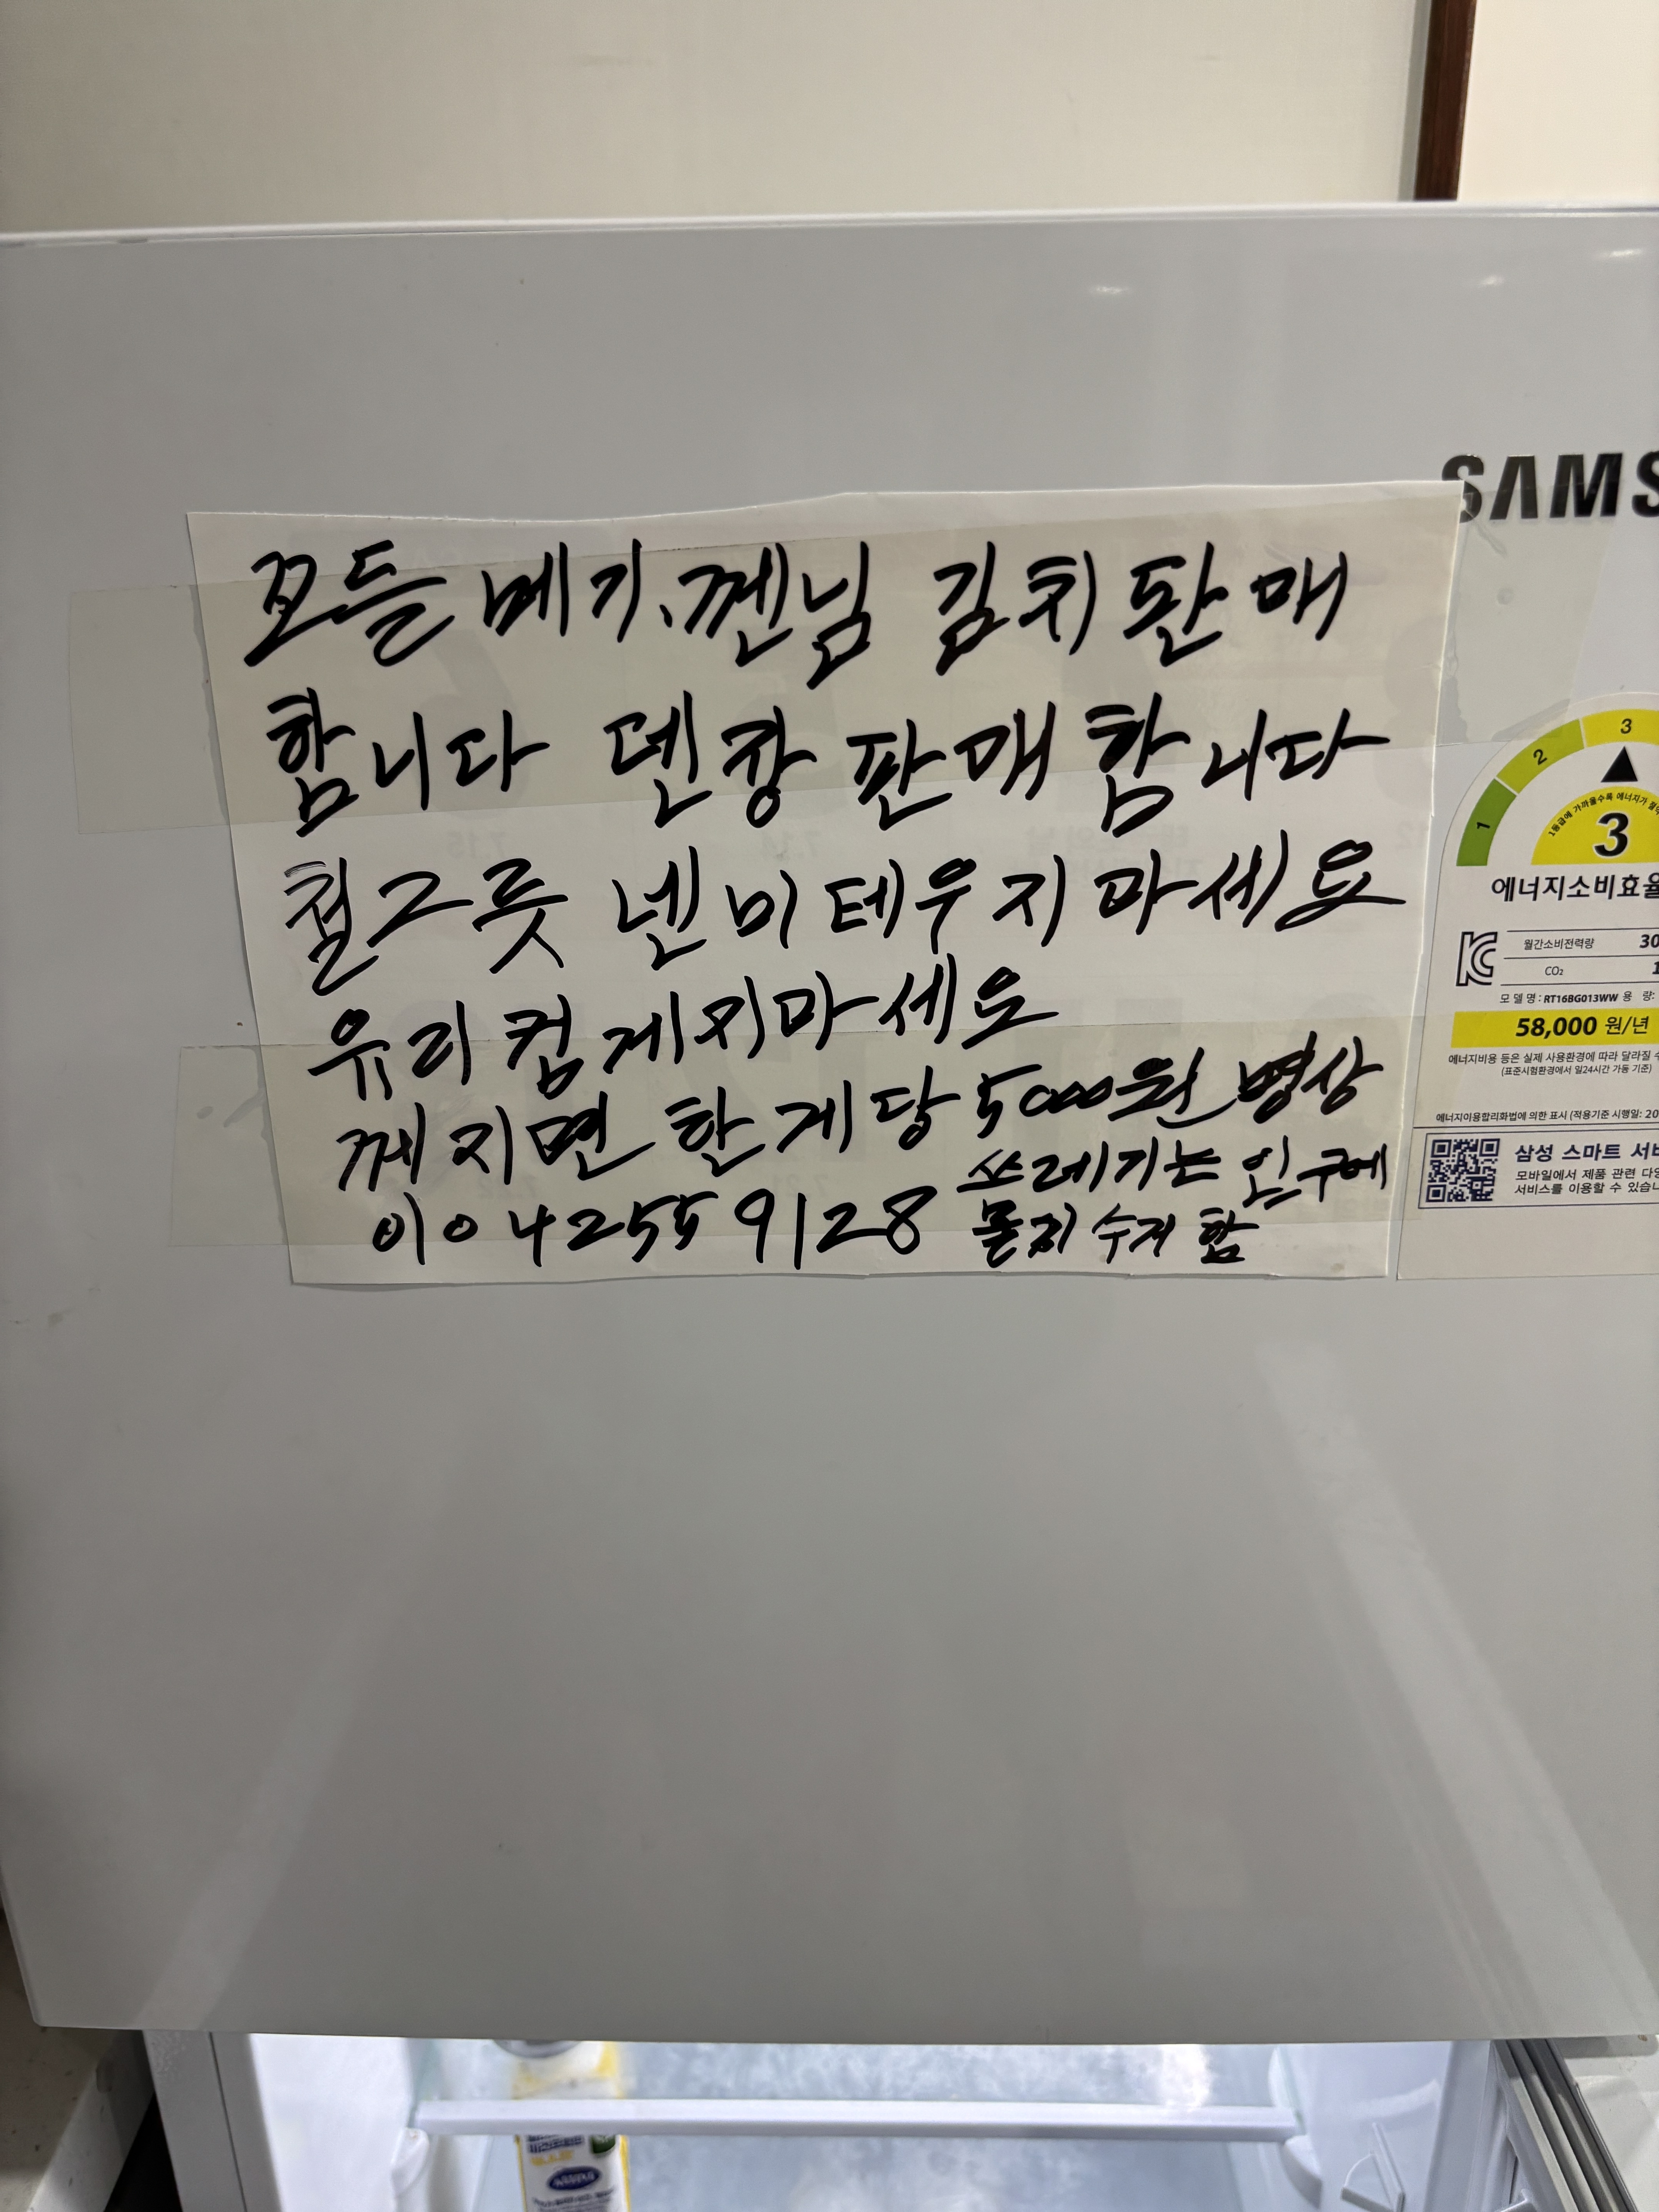 모들 베기.껜님 김치 판매
합니다 덴장 판매 합니다
철그릇 넨비 테우지 마세요
유리컵 께지마세요
께지면 한게당 5000원 병상
쓰레기는 인구에
010 4255 9128
수거함
SAMS
1
2
3
3
에너지소비효율
월간소비전력량
30
CO₂
1
모델명: RT16BG013WW 용 량:
58,000 원/년
에너지비용 등은 실제 사용환경에 따라 달라질 수
(표준시험환경에서 일24시간 가동 기준)
에너지이용합리화법에 의한 표시 (적용기준 시행일: 20
삼성 스마트 서비
모바일에서 제품 관련 다양
서비스를 이용할 수 있습니